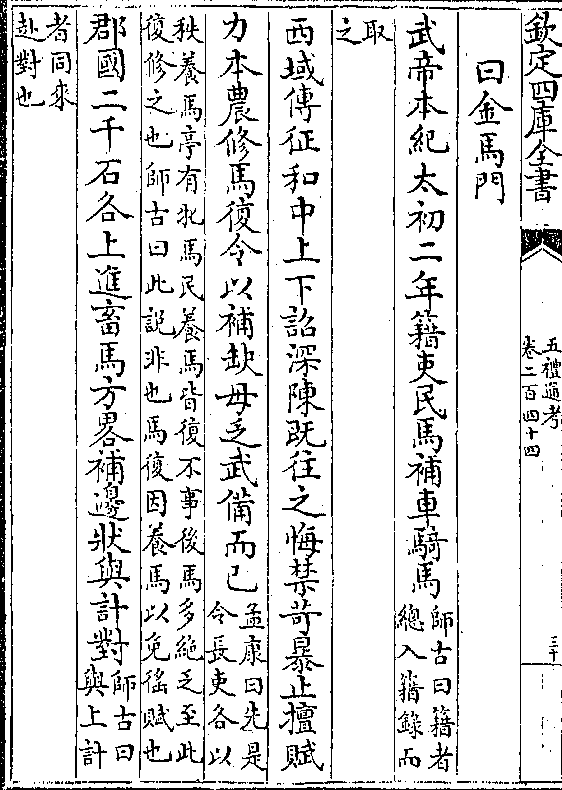 欽定四庫全書
五禮通考
卷二百四十四
三十
曰金馬門
武帝本紀太初二年籍吏民馬補車騎馬師古曰籍者
總入籍錄而
取
之
西域傳征和中上下詔深陳既往之悔禁苛暴止擅賦
力本農修馬復令以補缺毋乏武備而已孟康曰先是
令長吏各以
秩養馬亭有牝馬民養馬皆復不事後馬多絕乏至此
復修之也師古曰此說非也馬復因養馬以免徭賦也
郡國二千石各上進畜馬方畧補邊狀與計對師古曰
與上計
者同來
赴對也